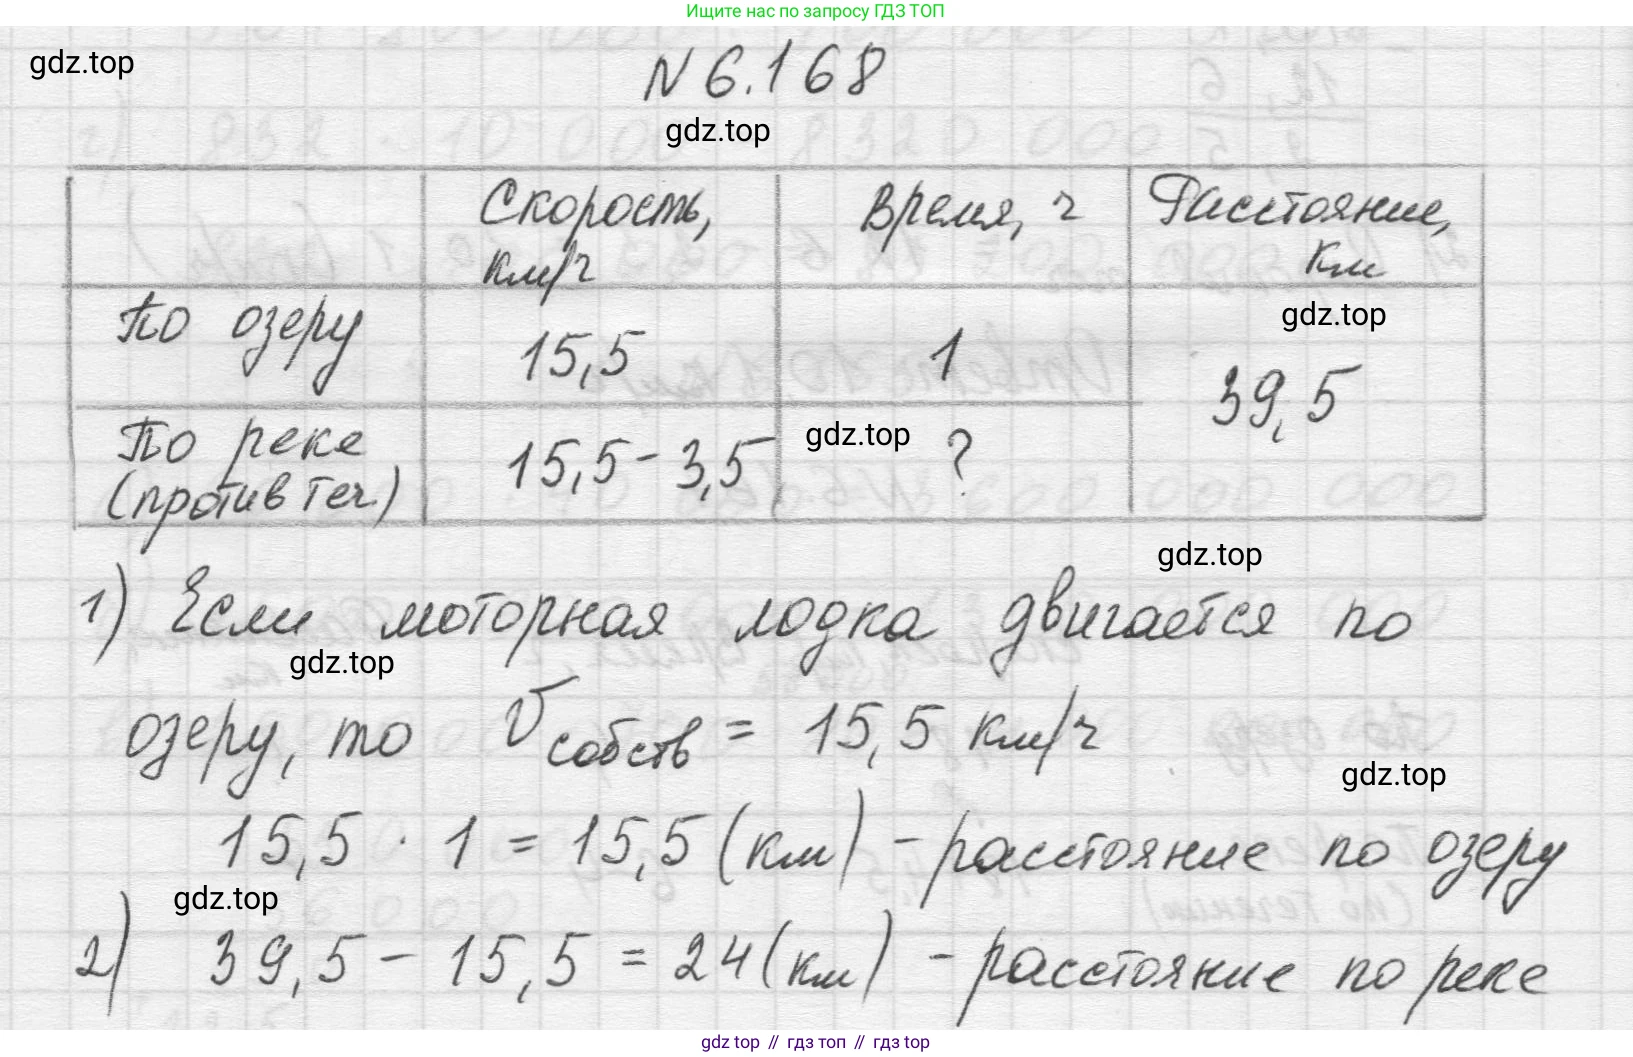 Ищите нас по запросу ГДЗ ТОП
gdz.top
N 6.168
gdz.top
Скорость, км/ч
Время, ч
Расстояние, км
gdz.top
По озеру
15,5
1
39,5
По реке (против теч.)
15,5 - 3,5
gdz.top
?
gdz.top
1) Если моторная лодка двигается по
gdz.top
озеру, то Vсобств = 15,5 км/ч
gdz.top
15,5 · 1 = 15,5 (км) - расстояние по озеру
gdz.top
2) 39,5 - 15,5 = 24 (км) - расстояние по реке
gdz top // гдз топ // gdz top